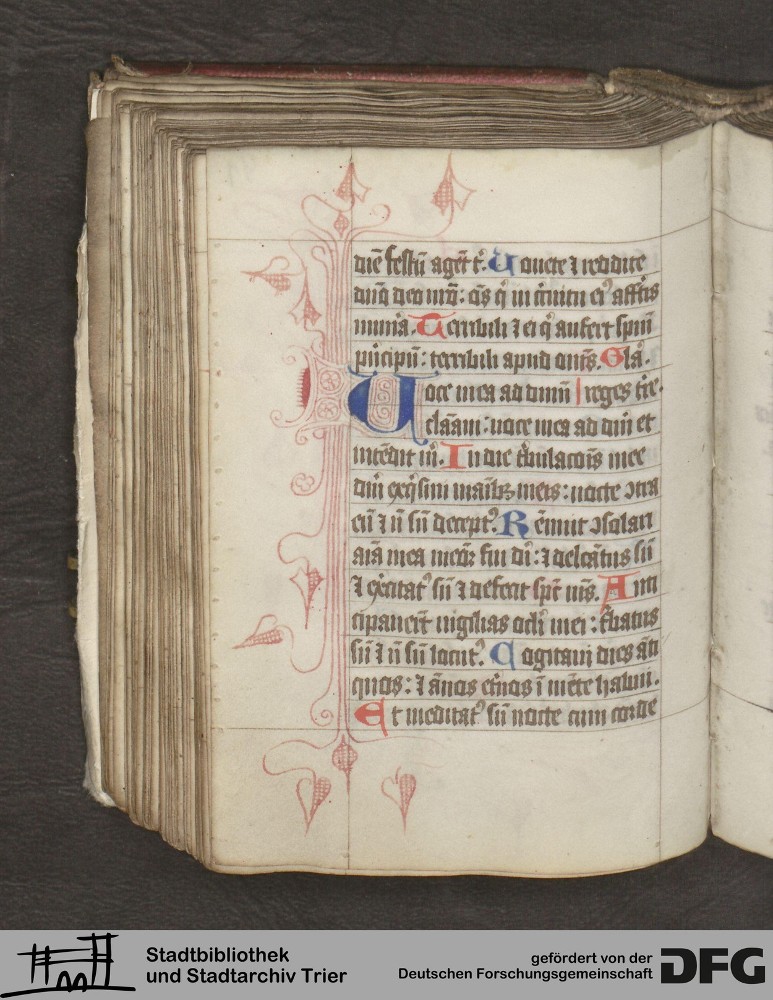 diē festū agēt tͥ. Uouete ⁊ reddite
dn̄o deo urō: oēs qͥ in cͥcuitu eiꝰ affertis
munͣa. Terribili ⁊ ei qͥ aufert spm̄
pͥncipū: terribili apud om̄s. Gła.
Uoce mea ad dn̄m
clāaui: uoce mea ad dm̄ et
intēdit m̄. In die tͥbulacōis mee
dm̄ exqͥsiui manibꝫ meis: nocte ɔtra
eū ⁊ nō sū deceptꝰ. Rēnuit ɔsolari
aīa mea memor fui dī: ⁊ delcātus sū
⁊ exͥcitatꝰ sū ⁊ defecit spc̄ mꝰ. Anti
cipauerūt uigilias oclī mei: tͥbatus
sū ⁊ nō sū locutꝰ. Cogitaui dies āti
quos: ⁊ ānos etͥnos ī mēte habui.
Et meditatꝰ sū nocte cum corde
Stadtbibliothek
und Stadtarchiv Trier
gefördert von der
Deutschen Forschungsgemeinschaft
DFG